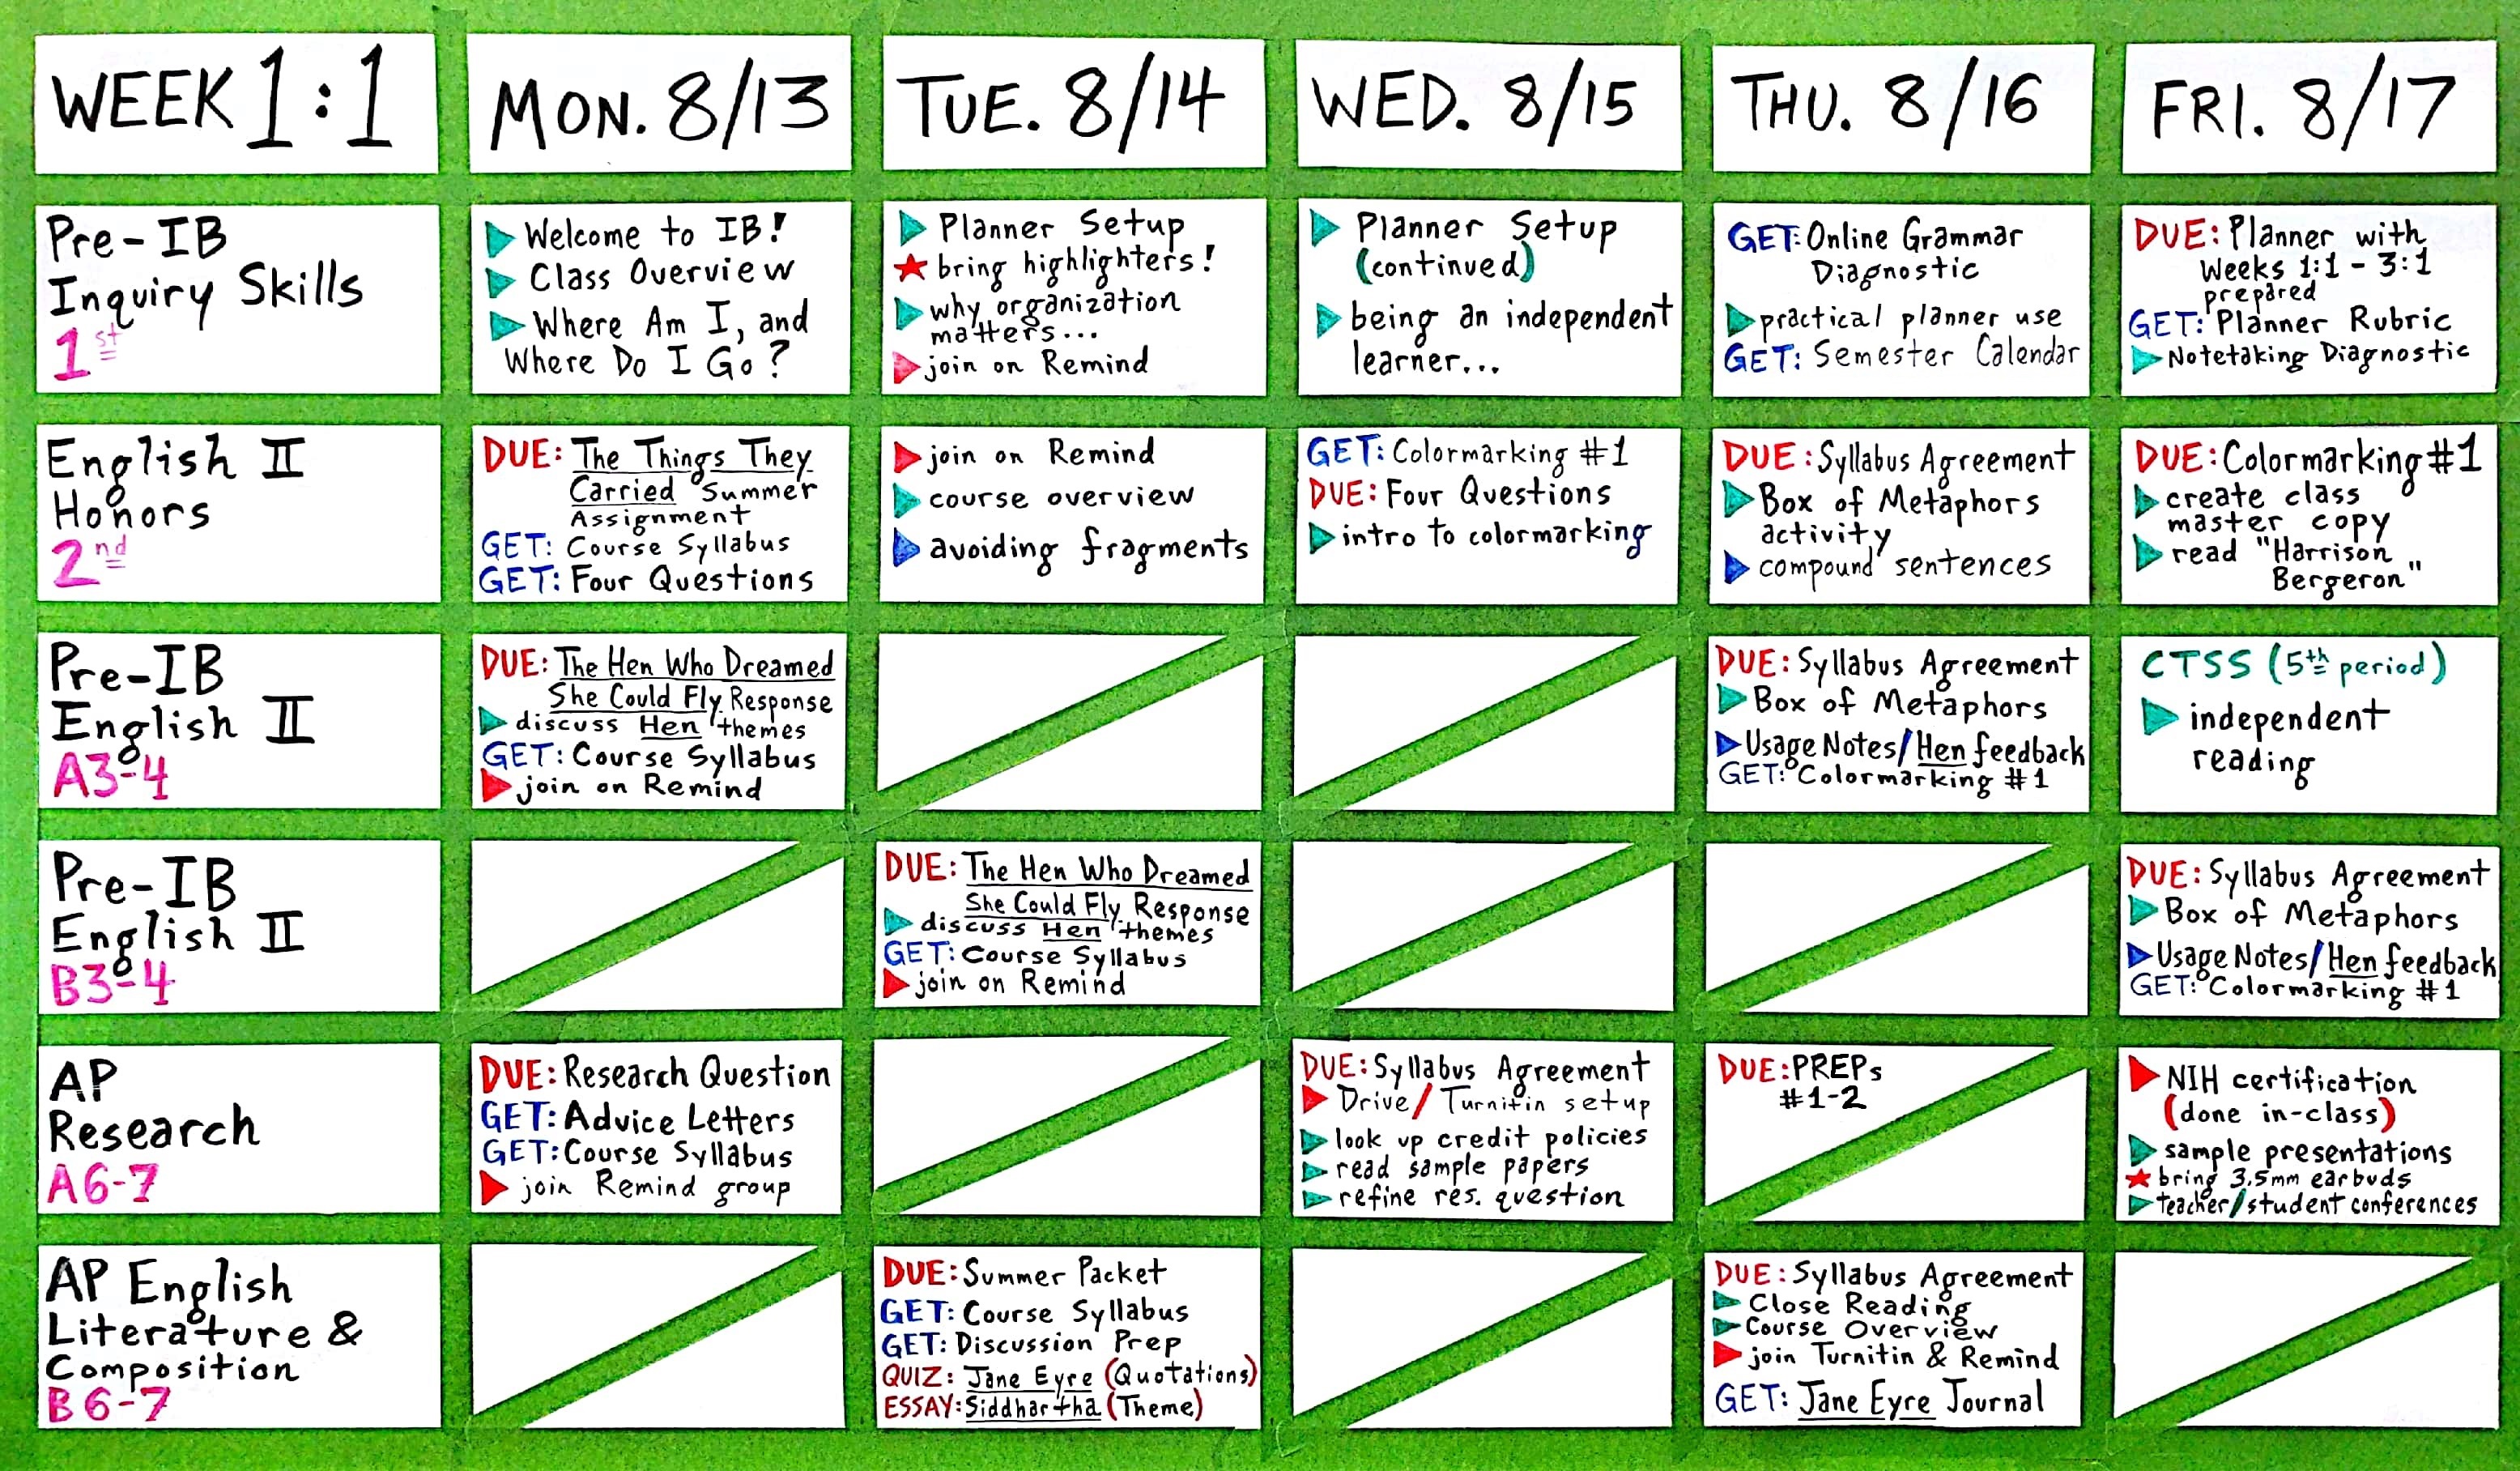 WEEK 1:1
MON. 8/13
TUE. 8/14
WED. 8/15
THU. 8/16
FRI. 8/17
Pre-IB
Inquiry Skills
1st
Welcome to IB!
Class Overview
Where Am I, and
Where Do I Go?
Planner Setup
bring highlighters!
why organization
matters...
join on Remind
Planner Setup
(continued)
being an independent
learner...
GET: Online Grammar
Diagnostic
practical planner use
GET: Semester Calendar
DUE: Planner with
Weeks 1:1 - 3:1
prepared
GET: Planner Rubric
Notetaking Diagnostic
English II
Honors
2nd
DUE: The Things They
Carried Summer
Assignment
GET: Course Syllabus
GET: Four Questions
join on Remind
course overview
avoiding fragments
GET: Colormarking #1
DUE: Four Questions
intro to colormarking
DUE: Syllabus Agreement
Box of Metaphors
activity
compound sentences
DUE: Colormarking #1
create class
master copy
read "Harrison
Bergeron"
Pre-IB
English II
A3-4
DUE: The Hen Who Dreamed
She Could Fly Response
discuss Hen themes
GET: Course Syllabus
join on Remind
DUE: Syllabus Agreement
Box of Metaphors
Usage Notes/Hen feedback
GET: Colormarking #1
CTSS (5th period)
independent
reading
Pre-IB
English II
B3-4
DUE: The Hen Who Dreamed
She Could Fly Response
discuss Hen themes
GET: Course Syllabus
join on Remind
DUE: Syllabus Agreement
Box of Metaphors
Usage Notes/Hen feedback
GET: Colormarking #1
AP
Research
A6-7
DUE: Research Question
GET: Advice Letters
GET: Course Syllabus
join Remind group
DUE: Syllabus Agreement
Drive/Turnitin setup
look up credit policies
read sample papers
refine res. question
DUE: PREPs
#1-2
NIH certification
(done in-class)
sample presentations
bring 3.5mm earbuds
teacher/student conferences
AP English
Literature &
Composition
B6-7
DUE: Summer Packet
GET: Course Syllabus
GET: Discussion Prep
QUIZ: Jane Eyre (Quotations)
ESSAY: Siddhartha (Theme)
DUE: Syllabus Agreement
Close Reading
Course Overview
join Turnitin & Remind
GET: Jane Eyre Journal